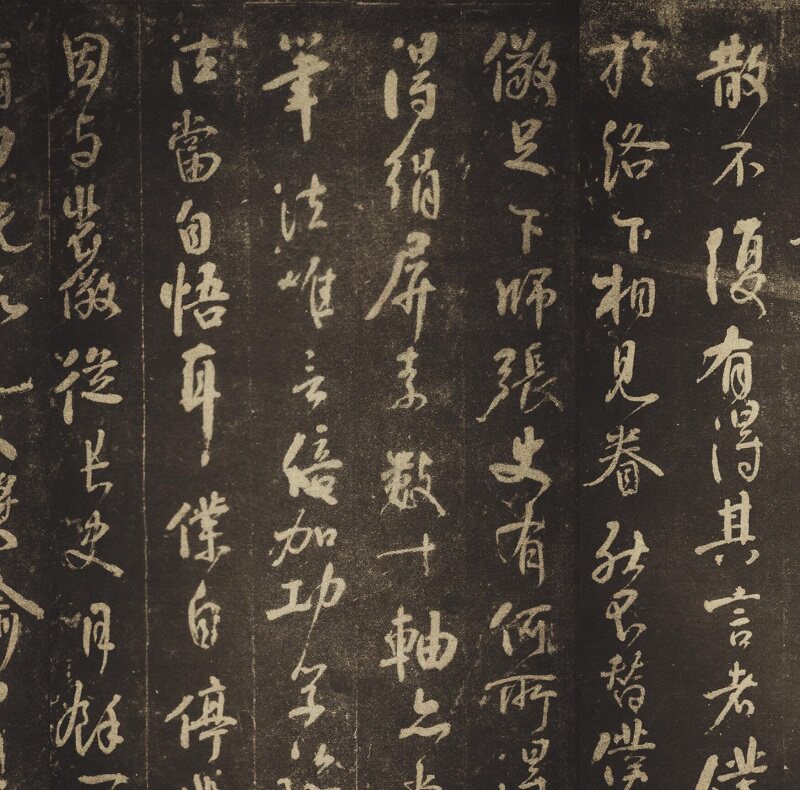 散不復有得其言者僕
於洛下相見眷然不替僕
儆足下師張史有何所得
得絹屏素數十軸亦
筆法唯言倍加功學臨
法當自悟耳僕自停裴
因与裴儆從長史月餘